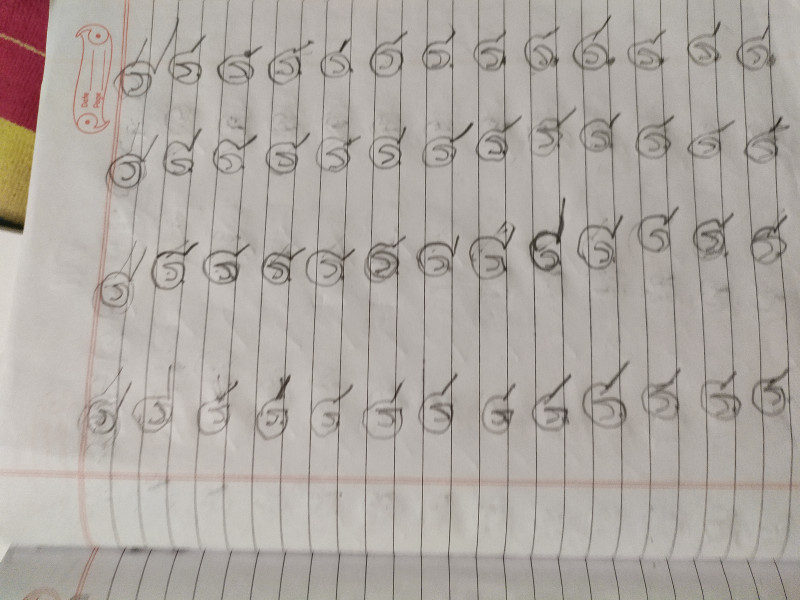 Date
Page
இ இ இ இ
இ இ இ இ
இ இ இ இ
இ இ இ இ
இ இ இ இ
இ இ இ இ
இ இ இ இ
இ இ இ இ
இ இ இ இ
இ இ இ இ
இ இ இ இ
இ இ இ இ
இ இ இ இ